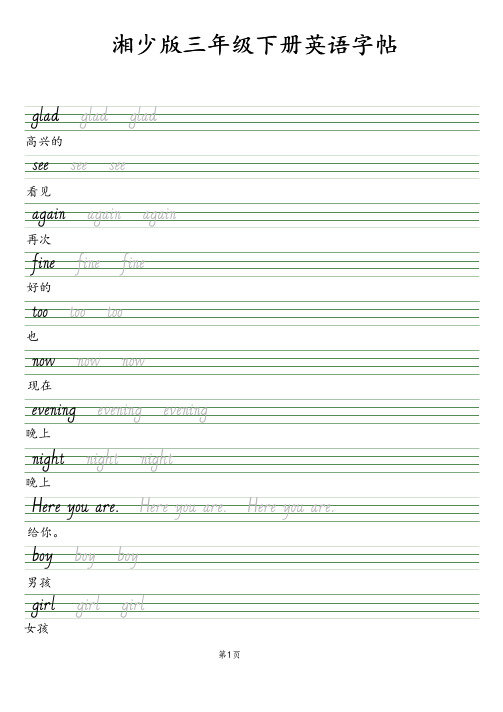 湘少版三年级下册英语字帖
glad glad glad
高兴的
see see see
看见
again again again
再次
fine fine fine
好的
too too too
也
now now now
现在
evening evening evening
晚上
night night night
晚上
Here you are. Here you are. Here you are.
给你。
boy boy boy
男孩
girl girl girl
女孩
第1页